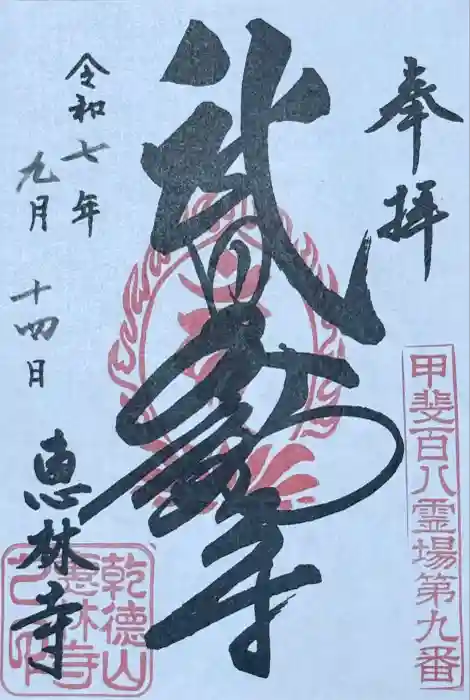 奉拝
甲斐百八霊場第九番
武田不動尊
令和七年
九月
十四日
恵林寺
乾徳山
恵林寺